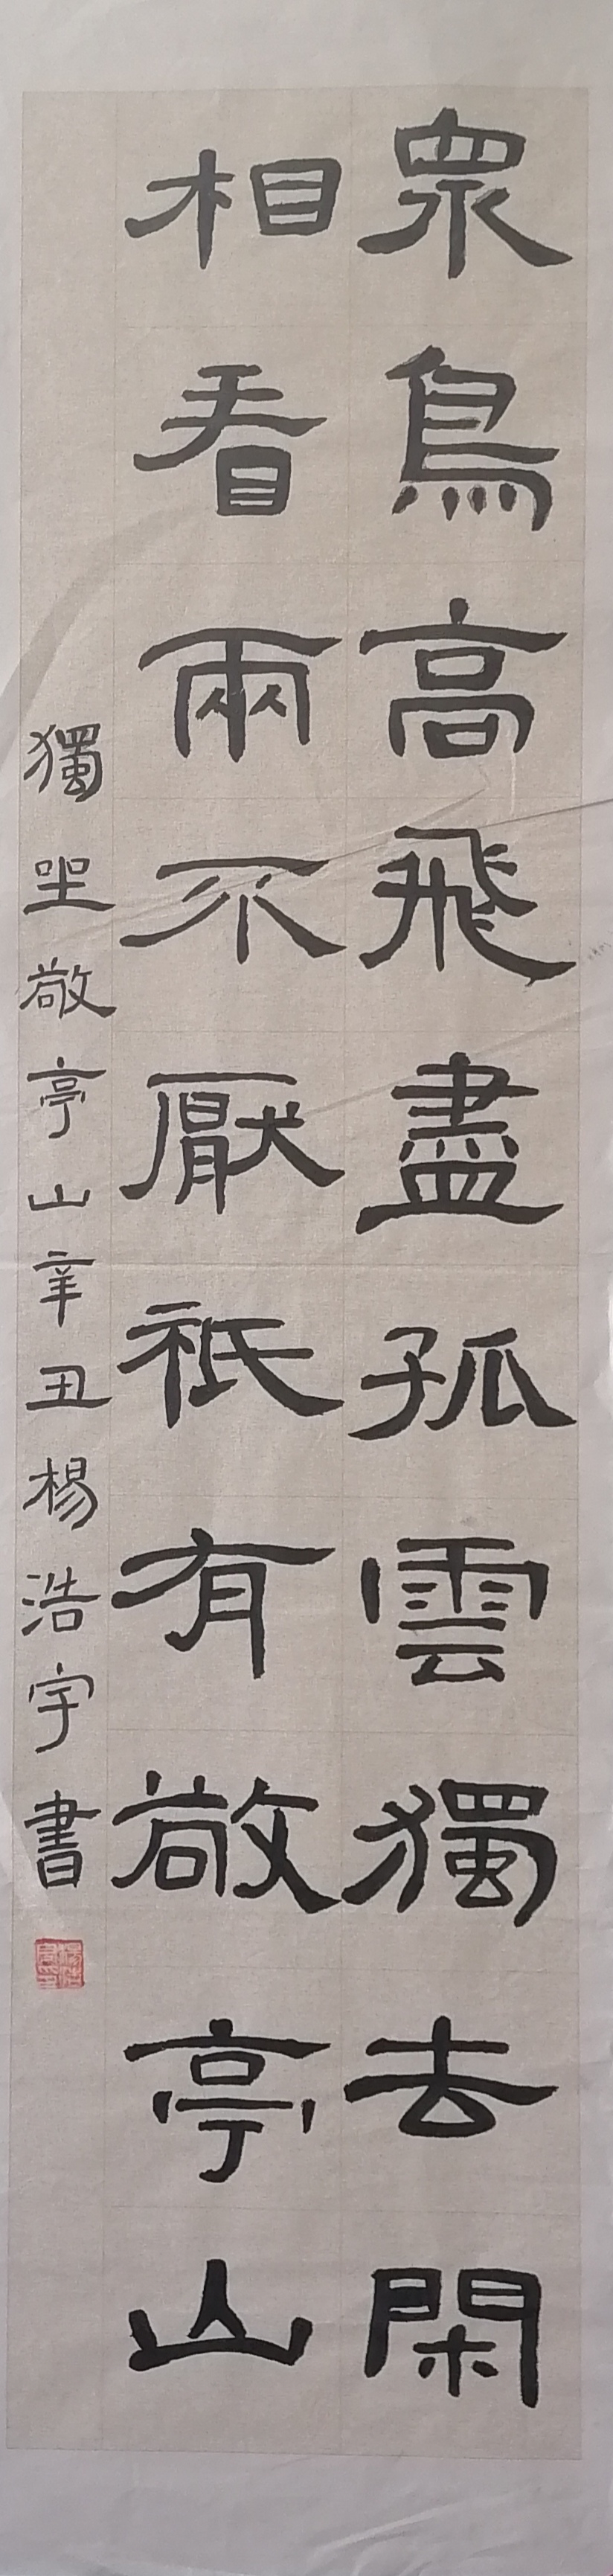 眾鳥高飛盡孤雲獨去閑
相看兩不厭祇有敬亭山
獨坐敬亭山辛丑楊浩宇書